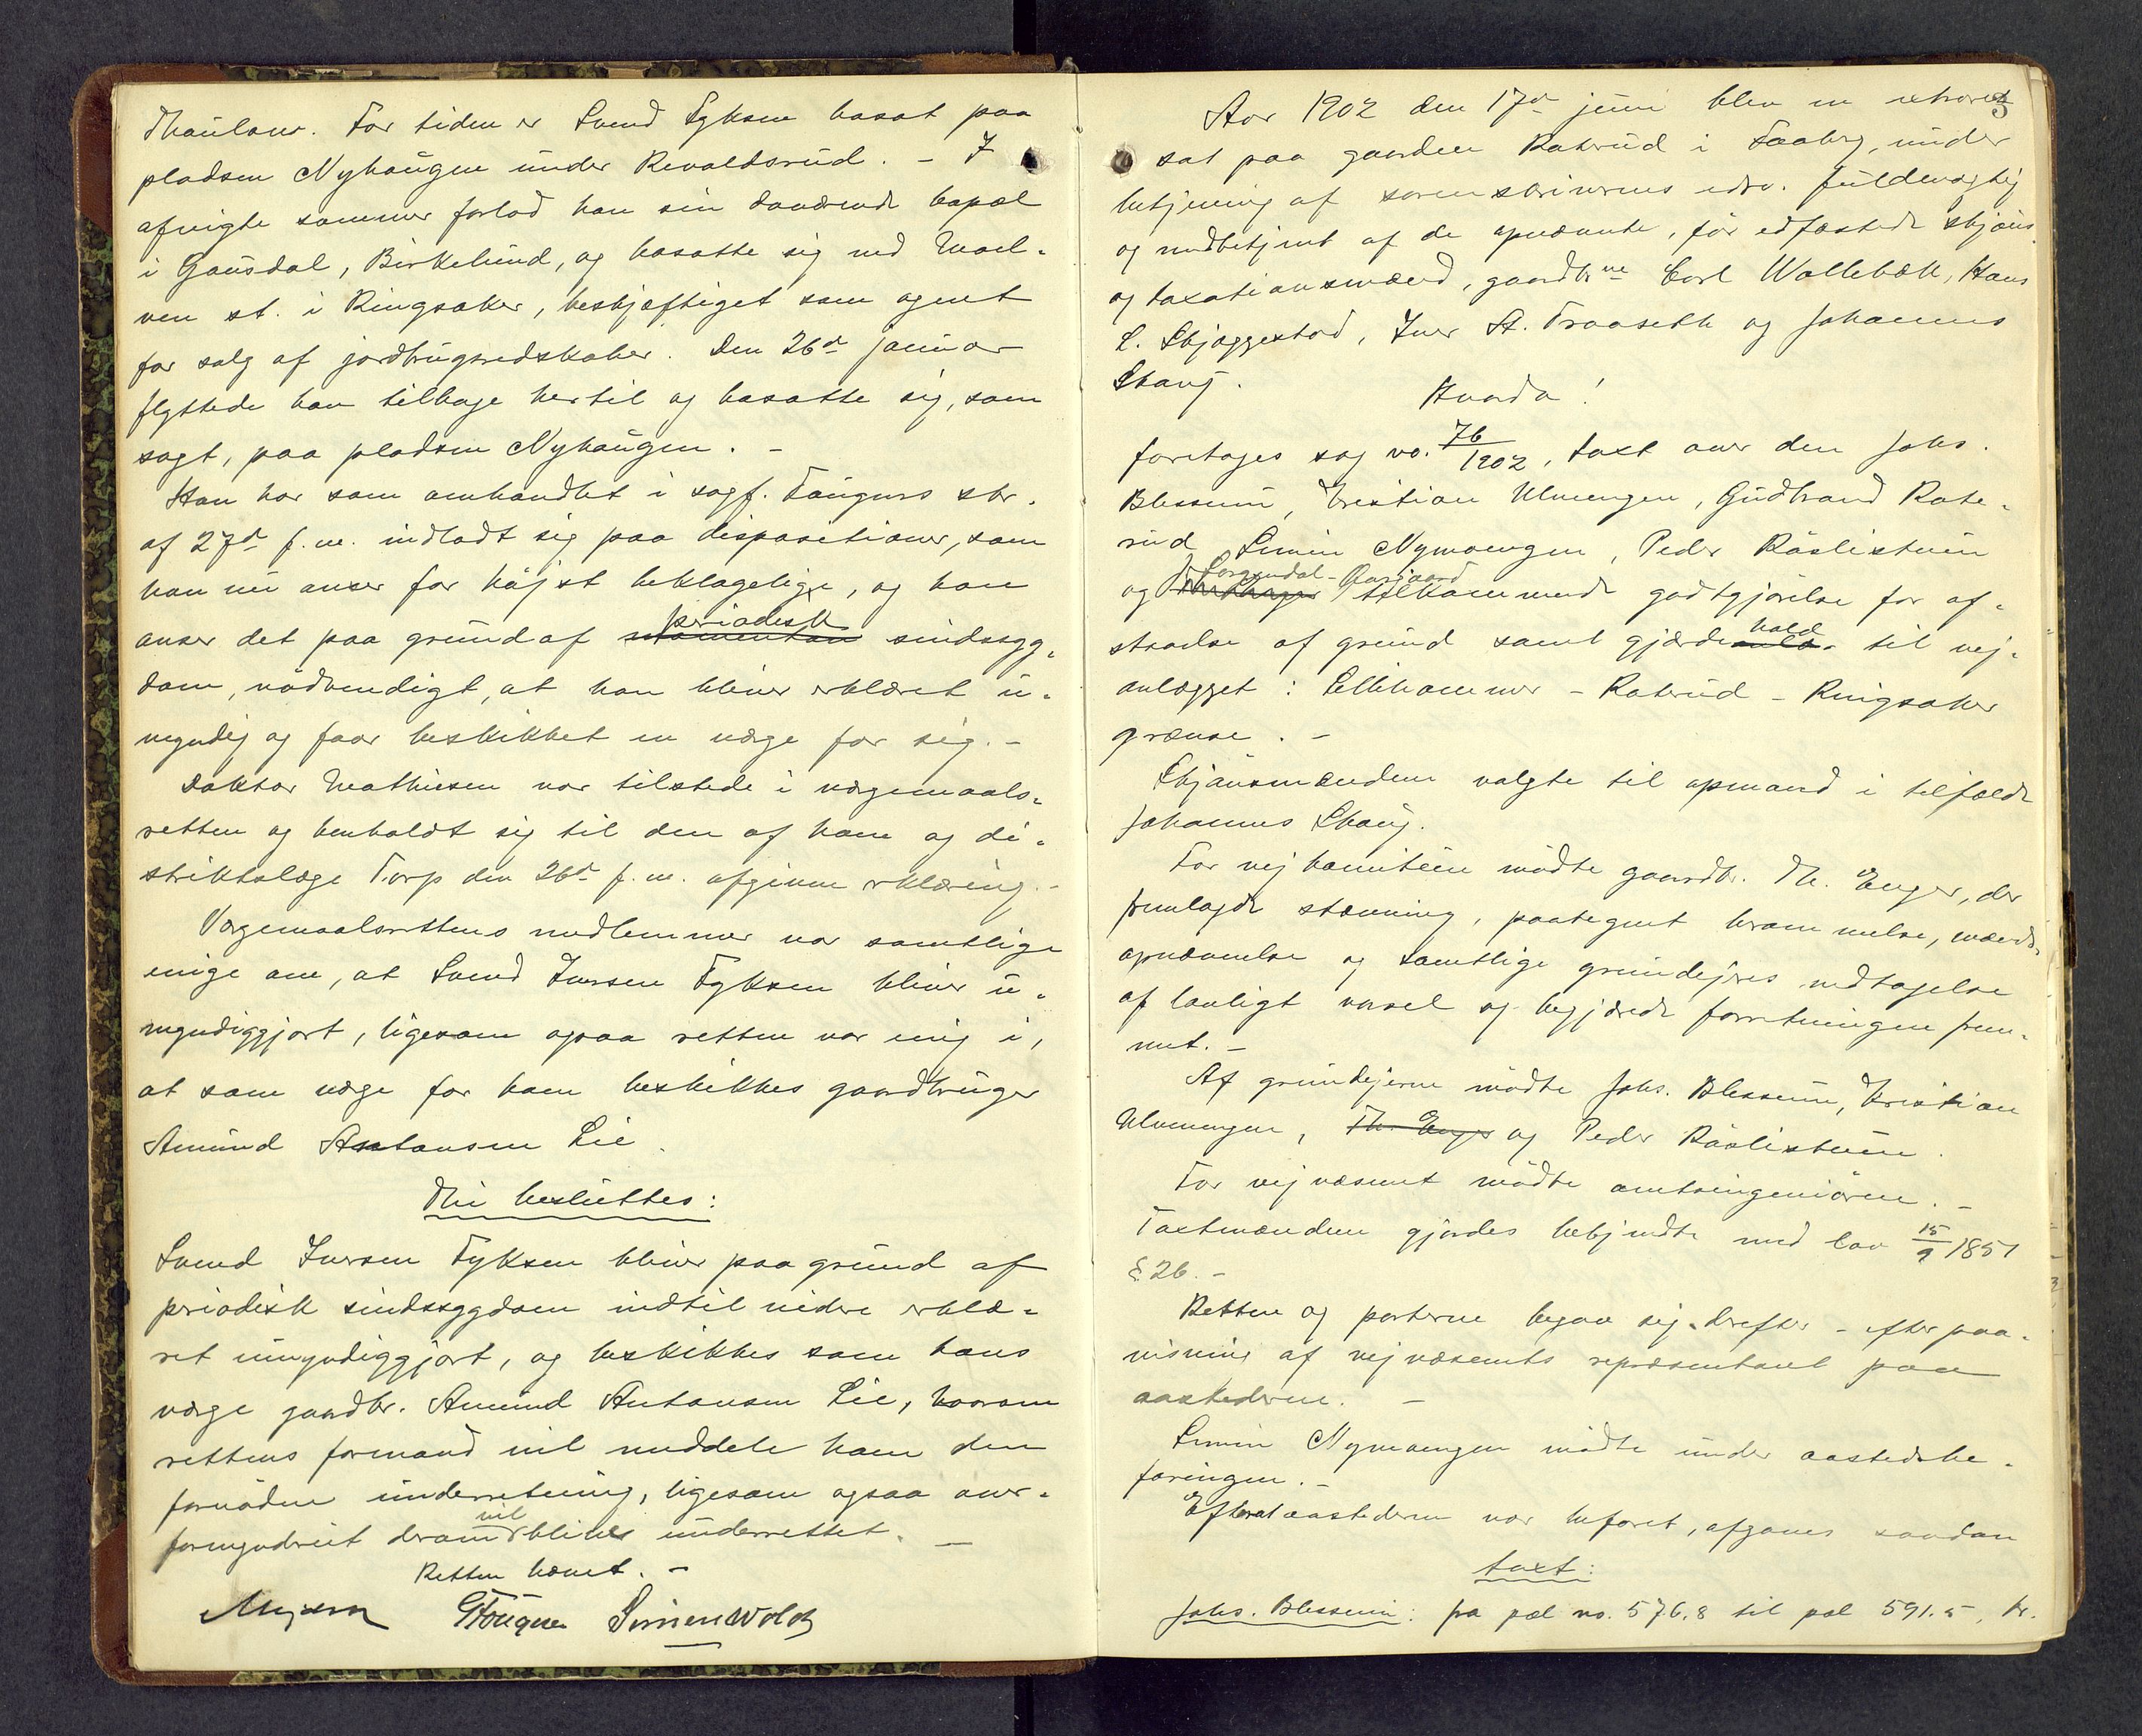 Thaulow. For tiden er Svend Fyksen bosat paa
pladsen Nyhaugen under Revaldsrud. - I
afvigte sommer forlod han sin daværende bopæl
i Gausdal, Birkelund, og bosatte sig ved Moel-
ven st. i Ringsaker, beskjæftiget som agent
for salg af jordbrugsredskaber. Den 26de januar
flyttede han tilbage hertil og bosatte sig, som
sagt, paa pladsen Nyhaugen. -
Han har som omhandlet i sagf. Faugners skr.
af 27de f. m. indladt sig paa dispositioner, som
han nu anser for højst beklagelige, og han
anser det paa grund af momentan periodisk sindssyg-
dom, nødvendigt, at han bliver erklæret u-
myndig og faar beskikket en værge for sig. -
Doktor Mathiesen var tilstede i værgemaals-
retten og henholdt sig til den af ham og di-
striktslæge Torp den 26de f. m. afgivne erklæring. -
Værgemaalsrettens medlemmer var samtlige
enige om, at Svend Iversen Fyksen bliver u-
myndiggjort, ligesom ogsaa retten var enig i,
at som værge for ham beskikkes gaardbruger
Amund Antonsen Lie.
Thi besluttes:
Svend Iversen Fyksen bliver paa grund af
periodisk sindssygdom indtil videre erklæ-
ret umyndiggjort, og beskikkes som hans
værge gaardbr. Amund Antonsen Lie, hvorom
rettens formand vil meddele ham den
fornødne underretning, ligesom ogsaa over-
formynderiet derom vil blive underrettet. -
Retten hævet. -
GFougner Simen Wold
3
Aar 1902 den 17de juni blev en extraret
sat paa gaarden Roterud i Faaberg, under
betjening af sorenskriverens edsv. fuldmægtig
og medbetjent af de opnævnte, før edfæstede skjøns-
og taxationsmænd, gaardbrne Carl Wollebæk, Hans
L. Skjaggestad, Iver A. Traaseth og Johannes
Skaug.
Hvorda!
foretages sag no. 76/1902, taxt over den Johs.
Blessum, Kristian Ulvengen, Gudbrand Rote-
rud, Simen Nymoengen, Peder Raaslistuen
og Jørgendal-Aasgaard tilkommende godtgjørelse for af-
staaelse af grund samt gjærdehold til vej-
anlægget: Lillehammer - Roterud - Ringsaker
grænse. -
Skjønsmændene valgte til opmand i tilfælde
Johannes Skaug.
For vejkomiteen mødte gaardbr. Th. Enger, der
fremlagde stævning, paategnet berammelse, mænds-
opnævnelse og samtlige grundejeres vedtagelse
af lovligt varsel og begjærede forretningen frem-
met. -
Af grundejerne mødte Johs. Blessum, Kristian
Ulvengen, Th. Enger og Peder Raaslistuen.
For vejvæsenet mødte amtsingeniøren. -
Taxtmændene gjordes bekjendte med lov 15/9 1851
§ 26. -
Retten og parterne begav sig derefter - efter paa-
visning af vejvæsenets repræsentant paa
aastederne. -
Simen Nymoengen mødte under aastedsbe-
faringen. -
Efterat aastederne var befaret, afgaves saadan
taxt:
Johs. Blessum: fra pæl no. 576.8 til pæl 591.5, kr.